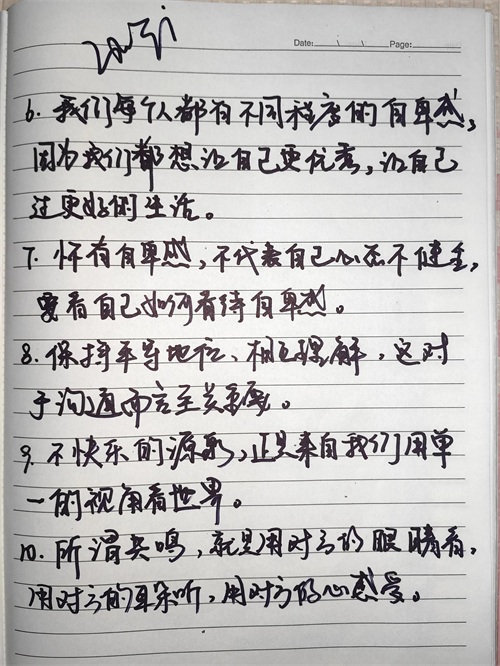 Date: \ \ Page:
6. 我们每个人都有不同程度的自卑感,
因为我们都想让自己更优秀,让自己
过更好的生活。
7. 怀有自卑感,不代表自己心态不健全,
要看自己如何看待自卑感。
8. 保持平等地位、相互理解,这对
于沟通而言至关重要。
9. 不快乐的源泉,正是来自我们用单
一的视角看世界。
10. 所谓共鸣,就是用对方的眼睛看,
用对方的耳朵听,用对方的心感受。